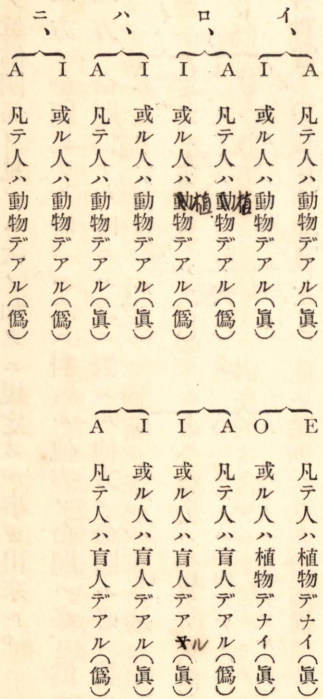 イ、
A 凡テ人ハ動物デアル(眞)
I 或ル人ハ動物デアル(眞)
ロ、
A 凡テ人ハ植物デアル(僞)
I 或ル人ハ植物デアル(僞)
ハ、
I 或ル人ハ動物デアル(眞)
A 凡テ人ハ動物デアル(眞)
ニ、
I 或ル人ハ動物デアル(僞)
A 凡テ人ハ動物デアル(僞)
E 凡テ人ハ植物デナイ(眞)
O 或ル人ハ植物デナイ(眞)
A 凡テ人ハ盲人デアル(僞)
I 或ル人ハ盲人デアル(眞)
I 或ル人ハ盲人デアル(眞)
A 凡テ人ハ盲人デアル(僞)